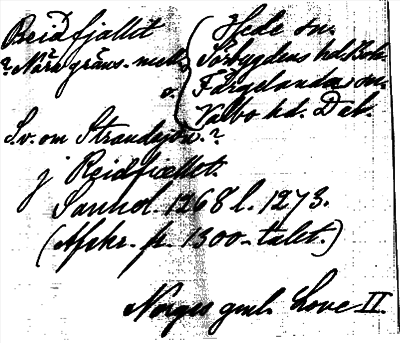 Reidfjallit
? Nära gräns mell. { Hede sn.
Sörbygdens hd. Boh.
o. Färgelanda sn.
Valbo hd. Dal.
S.v. om Strandsjön. ?
j Reidfiællet.
Sanhd. 1268 l. 1273.
(Afskr. fr. 1300-talet.)
Norges gml. Love II.